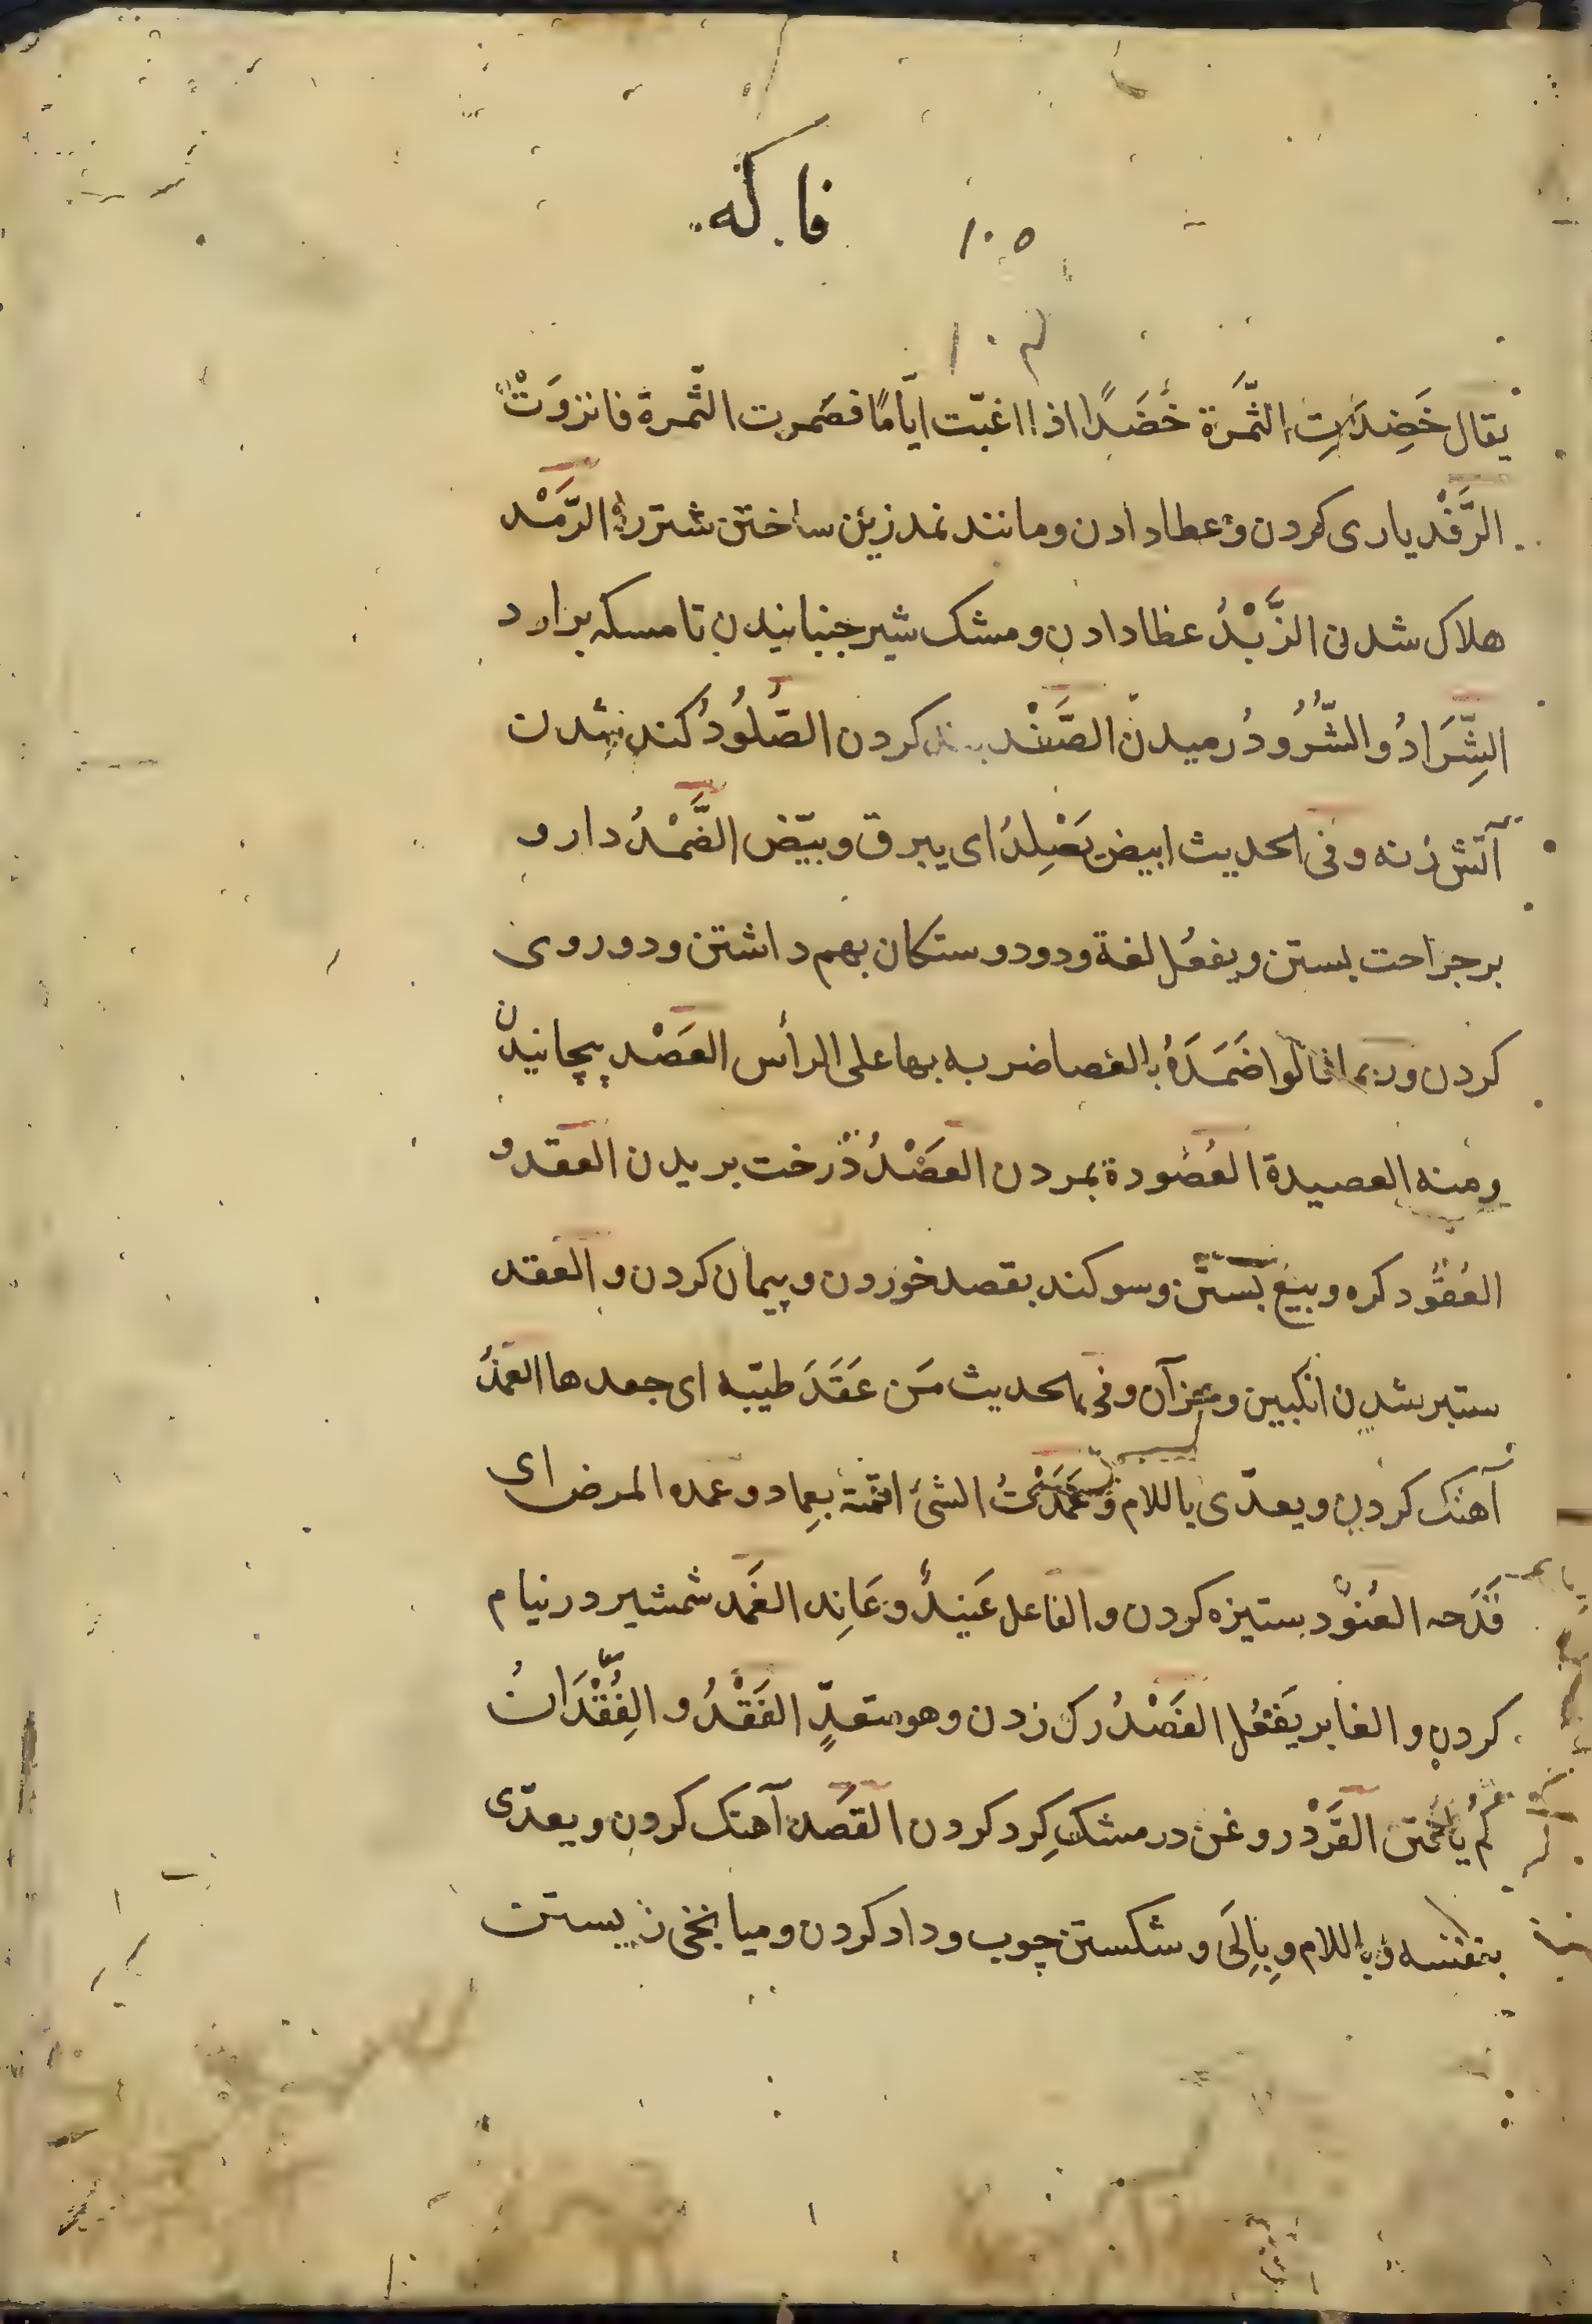 فاكه
١٠٥
١٠٤
يقال خَضِدَتِ الثَّمَرَة خَضَدًا اذا اغبّت ايّامًا فضمرت الثّمرة فانزوَتْ
الرَّفْد يارى كردن و عطا دادن و مانند نمد زين ساختن شتر را الرَّمْد
هلاك شدن الزَّبْدُ عطا دادن و مشك شير جنبانيدن تا مسكه برارد
الشِّرَادُ والشُّرُودُ رميدن الصَّفْد بند كردن الصُّلُودُ كند شدن
آتش زنه و فى الحديث ابيض يَصْلِدُ اى يبرق و يبيّض الضَّمْدُ دارو
بر جراحت بستن و يفعُل لغة و دو دوستكان بهم داشتن و دو روى
كردن و ربما قالوا ضَمَدَهُ بالعصا ضربه بها على الرأس العَصْد پيچانيدن
ومنه العصيدة العُصُودة بمردن العَضْدُ درخت بريدن العقد و
العُقُود كره و بيع بستن و سوكند بقصد خوردن و پيمان كردن و العقد
ستبر شدن انكبين و جز آن و فى الحديث مَن عَقَدَ لحيته اى جعدها العَمْدُ
آهنك كردن و يعدّى باللام و عَمَدْتُ الشئ اقمته بِعِماد و عمده المرض اى
فَدَحه العُنُوْد ستيزه كردن و الفاعل عَنِيدٌ و عَانِد الغَمْد شمشير در نيام
كردن و الغابر يَفعُل الفَصْدُ رك زدن و هو متعدٍّ الفَقْدُ و الفُِقْدَانُ
كم يافتن القَرْد روغن در مشك كِرد كردن القَصْد آهنك كردن و يعدّى
بنفسه و باللام و بِاِلَى و شكستن چوب و داد كردن و ميانجى زيستن